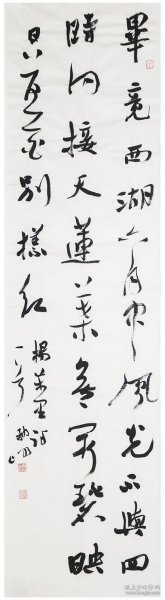 畢竟西湖六月中風光不與四
時同接天蓮葉無窮碧映
日荷花別樣紅
楊萬里詩
一首